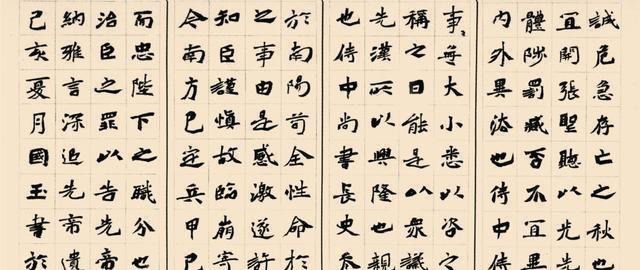 誠危急存亡之秋也
宜開張聖聽以光先
體陟罰臧否不宜異
內外異法也侍中侍
事〻無大小悉以咨之
稱之曰能是以眾議
先漢所以興隆也親
也侍中尚書長史參
於南陽苟全性命於
之事由是感激遂許
知臣謹慎故臨崩寄
今南方已定兵甲已
而忠陛下之職分也
治臣之罪以告先帝
納雅言深追先帝遺
己亥夏月國玉書於